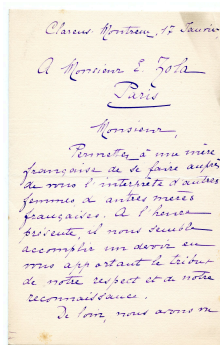 Clarens-Montreux, 17 Janvier
A Monsieur E. Zola
Paris
Monsieur,
Permettez à une mère
française de se faire auprès
de vous l'interprète d'autres
femmes & autres mères
françaises. A l'heure
présente, il nous semble
accomplir un devoir en
vous apportant le tribut
de notre respect et de notre
reconnaissance.
De loin, nous avons su